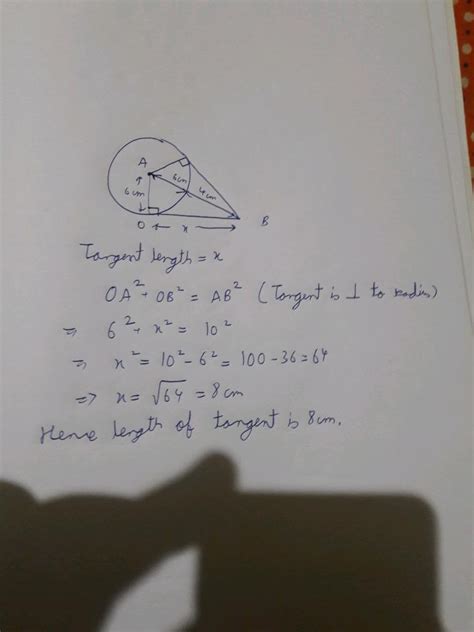 A
6cm
6cm
4cm
O
x
B
Tangent length = x
OA² + OB² = AB² (Tangent is ⊥ to radius)
⇒ 6² + x² = 10²
⇒ x² = 10² - 6² = 100 - 36 = 64
⇒ x = √64 = 8cm
Hence length of tangent is 8cm.